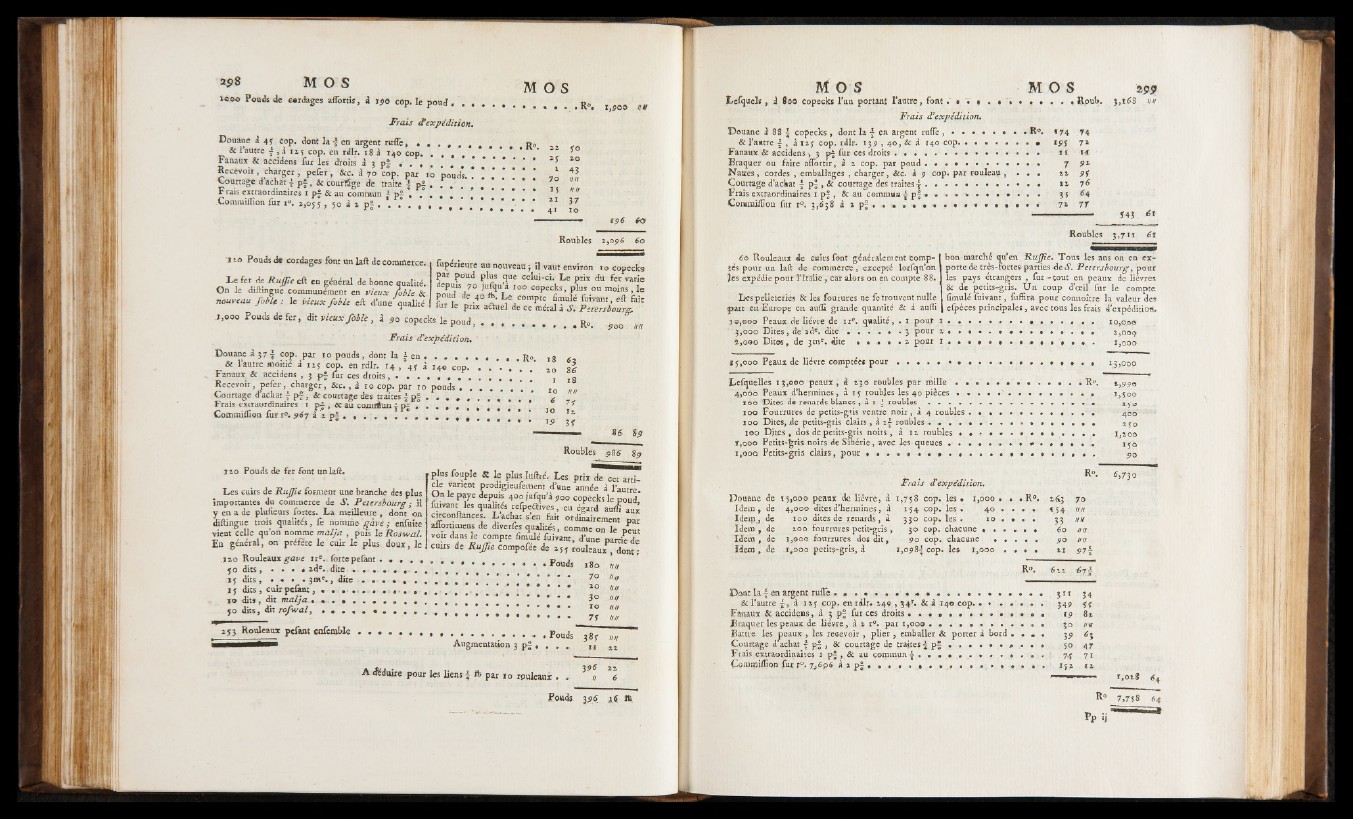 298 MOS MOS
1000 Pouds de cordages assortis, à 190 cop. le poud . . . . . . . . . . . . . R°. 1,900 "
Frais d'expédition.
Douane à 45 cop. dont la en argent russe, . . . . . . . . . . R°. 22 50
& l'autre , à 125 cop. en rdlr. 18 à 140 cop. . . . . . . . 25 20
Fanaux & accidens sur les droits à 3 p° . . . . . . . . . 1 43
Recevoir, charger, peser, &c. à 70 cop. par 10 pouds. . . . . . 70 "
Courtage d'achat p°, & courtage de traite p° . . . . . . . 15 "
Frais extraordinaires 1 p° & au commun p° . . . . . . . . 21 37
Commission sur r°. 2,055, 50 à 2 p° . . . . . . . . . . . 41 10
196 60
Roubles 2,096 60
120 Pouds de cordages font un last de commerce.
Le fer de Russie est en général de bonne qualité.
On le distingue communément en vieux soble &
nouveau soble : le vieux soble est d'une qualité
supérieure au nouveau ; il vaut environ 10 copecks
par poud plus que celui-ci. Le prix du fer varie
depuis 70 jusqu'à 100 copecks, plus ou moins, le
poud de 40 ℔. Le compte simulé suivant, est fait
sur le prix actuel de ce métal à S. Petersbourg.
1,000 Pouds de fer, dit vieux soble, à 90 copecks le poud, . . . . . . . . . R°. 900 "
Frais d'expédition.
Douane à 37 cop. par 10 pouds, dont la en . . . . . . . . R°. 18 63
& l'autre moitié à 125 cop. en rdlr. 14, 45 à 140 cop. . . . . . 20 86
Fanaux & accidens, 3 p° sur ces droits, . . . . . . . . . 1 18
Recevoir, peser, charger, &c., à 10 cop. par 10 pouds . . . . . 10 "
Courtage d'achat p°, & courtage des traites p° . . . . . . . 6 75
Frais extraordinaires 1 p°, & au commun p° . . . . . . . . 10 12
Commission sur r°. 967 à 2 p° . . . . . . . . . . . . . 19 35
86 89
Roubles 986 89
120 Pouds de fer font un last.
Les cuirs de Russie forment une branche des plus
importantes du commerce de S. Petersbourg ; il
y en a de plusieurs sortes. La meilleure, dont on
distingue trois qualités, se nomme gave ; ensuite
vient celle qu'on nomme maltja, puis le Roswal.
En général, on préfère le cuir le plus doux, le
plus souple & le plus lustré. Les prix de cet arti-
cle varient prodigieusement d'une année à l'autre.
On le paye depuis 400 jusqu'à 900 copecks le poud,
suivant les qualités respectives, eu égard aussi aux
circonstances. L'achat s'en fait ordinairement par
assortimens de diverses qualités, comme on le peut
voir dans le compte simulé suivant, d'une partie de
cuirs de Russie composée de 255 rouleaux, dont :
120 Rouleaux gave 1re. sorte pesant . . . . . . . . . . . Pouds 180 "
50 dits, . . . . 2de. dite . . . . . . . . . . . . . . . 70 "
15 dits, . . . . 3me., dite . . . . . . . . . . . . . . . 20 "
15 dits, cuir pesant, . . . . . . . . . . . . . . . . . 30 "
10 dits, dit malja . . . . . . . . . . . . . . . . . . 10 "
50 dits, dit roswal, . . . . . . . . . . . . . . . . . 75 "
253 Rouleaux pesant ensemble . . . . . . . . . . . . Pouds 385 "
Augmentation 3 p° . . . . 11 22
396 22
A déduire pour les liens ℔ par 10 rouleaux . . 0 6
Pouds 396 16 ℔
MOS MOS 299
Lesquels, à 800 copecks l'un portant l'autre, font . . . . . . . . . . . . Roub. 3,168 "
Frais d'expédition.
Douane à 88 copecks, dont la en argent russe, . . . . . . . . R°. 174 74
& l'autre , à 125 cop. rdlr. 139, 40, & à 140 cop. . . . . . . . 195 72
Fanaux & accidens, 3 p° sur ces droits . . . . . . . . . . 11 11
Braquer ou faire assortir, à 2 cop. par poud . . . . . . . . . 7 92
Nattes, cordes, emballages, charger, &c. à 9 cop. par rouleau, . . . 22 95
Courtage d'achat p°, & courtage des traites . . . . . . . . . 22 76
Frais extraordinaires 1 p°, & au commun p° . . . . . . . . 35 64
Commission sur r°. 3,638 à 2 p° . . . . . . . . . . . . . 72 77
543 61
Roubles 3,711 61
60 Rouleaux de cuirs sont généralement comp-
tés pour un last de commerce, excepté lorsqu'on
les expédie pour l'Italie, car alors on en compte 88.
Les pelleteries & les fourures ne se trouvent nulle
part en Europe en aussi grande quantité & à aussi
bon marché qu'en Russie. Tous les ans on en ex-
porte de très-fortes parties de S. Petersbourg, pour
les pays étrangers, sur-tout en peaux de liévres
& de petits-gris. Un coup d'œil sur le compte
simulé suivant, suffira pour connoître la valeur des
espèces principales, avec tous les frais d'expédition.
10,000 Peaux de liévre de 1re. qualité, . 1 pour 1 . . . . . . . . . . . 10,000
3,000 Dites, de 2de. dite . . . . . . 3 pour 2 . . . . . . . . . . . 2,000
2,000 Dites, de 3me. dite . . . . . 2 pour 1 . . . . . . . . . . . 1,000
15,000 Peaux de liévre comptées pour . . . . . . . . . . . . . . . . 13,000
Lesquelles 13,000 peaux, à 230 roubles par mille . . . . . . . . . . R°. 2,990
4,000 Peaux d'hermines, à 15 roubles les 40 pièces . . . . . . . . . . . 1,500
100 Dites de renards blancs, à 1 roubles . . . . . . . . . . . . . 150
100 Fourrures de petits-gris ventre noir, à 4 roubles . . . . . . . . . 400
100 Dites, de petits-gris clairs, à 2½ roubles . . . . . . . . . . . . 250
100 Dites, dos de petits-gris noirs, à 12 roubles . . . . . . . . . . 1,200
1,000 Petits-gris noirs de Sibérie, avec les queues . . . . . . . . . . . 150
1,000 Petits-gris clairs, pour . . . . . . . . . . . . . . . . . . 90
R°. 6,730
Frais d'expédition.
Douane de 15,000 peaux de liévre, à 1,758 cop. les . 1,000 . . . R°. 263 70
Idem, de 4,000 dites d'hermines, à 154 cop. les . 40 . . . . 154 "
Idem, de 100 dites de renards, à 330 cop. les . 10 . . . . 33 "
Idem, de 200 fourrures petit-gris, 30 cop. chacune . . . . . . 60 "
Idem, de 1,000 fourrures dos dit, 90 cop. chacune . . . . . 90 "
Idem, de 1,000 petits-gris, à 1,098½ cop. les 1,000 . . . . 21 97½
R°. 622 67½
Dont la en argent russe . . . . . . . . . . . . . . . . 311 34
& l'autre , à 125 cop. en rdlr. 249, 34½. & à 140 cop. . . . . . . . 349 55
Fanaux & accidens, à 3 p° sur ces droits . . . . . . . . . . 19 82
Braquer les peaux de liévre, à 2 r°. par 1,000 . . . . . . . . . 30 "
Battre les peaux, les recevoir, plier, emballer & porter à bord . . . . 39 63
Courtage d'achat p°, & courtage de traites p° . . . . . . . . 50 47
Frais extraordinaires 1 p°, & au commun . . . . . . . . . . 75 71
Commission sur r°. 7,606 à 2 p° . . . . . . . . . . . . . 152 12
1,028 64
R° 7,758 64
Pp ij